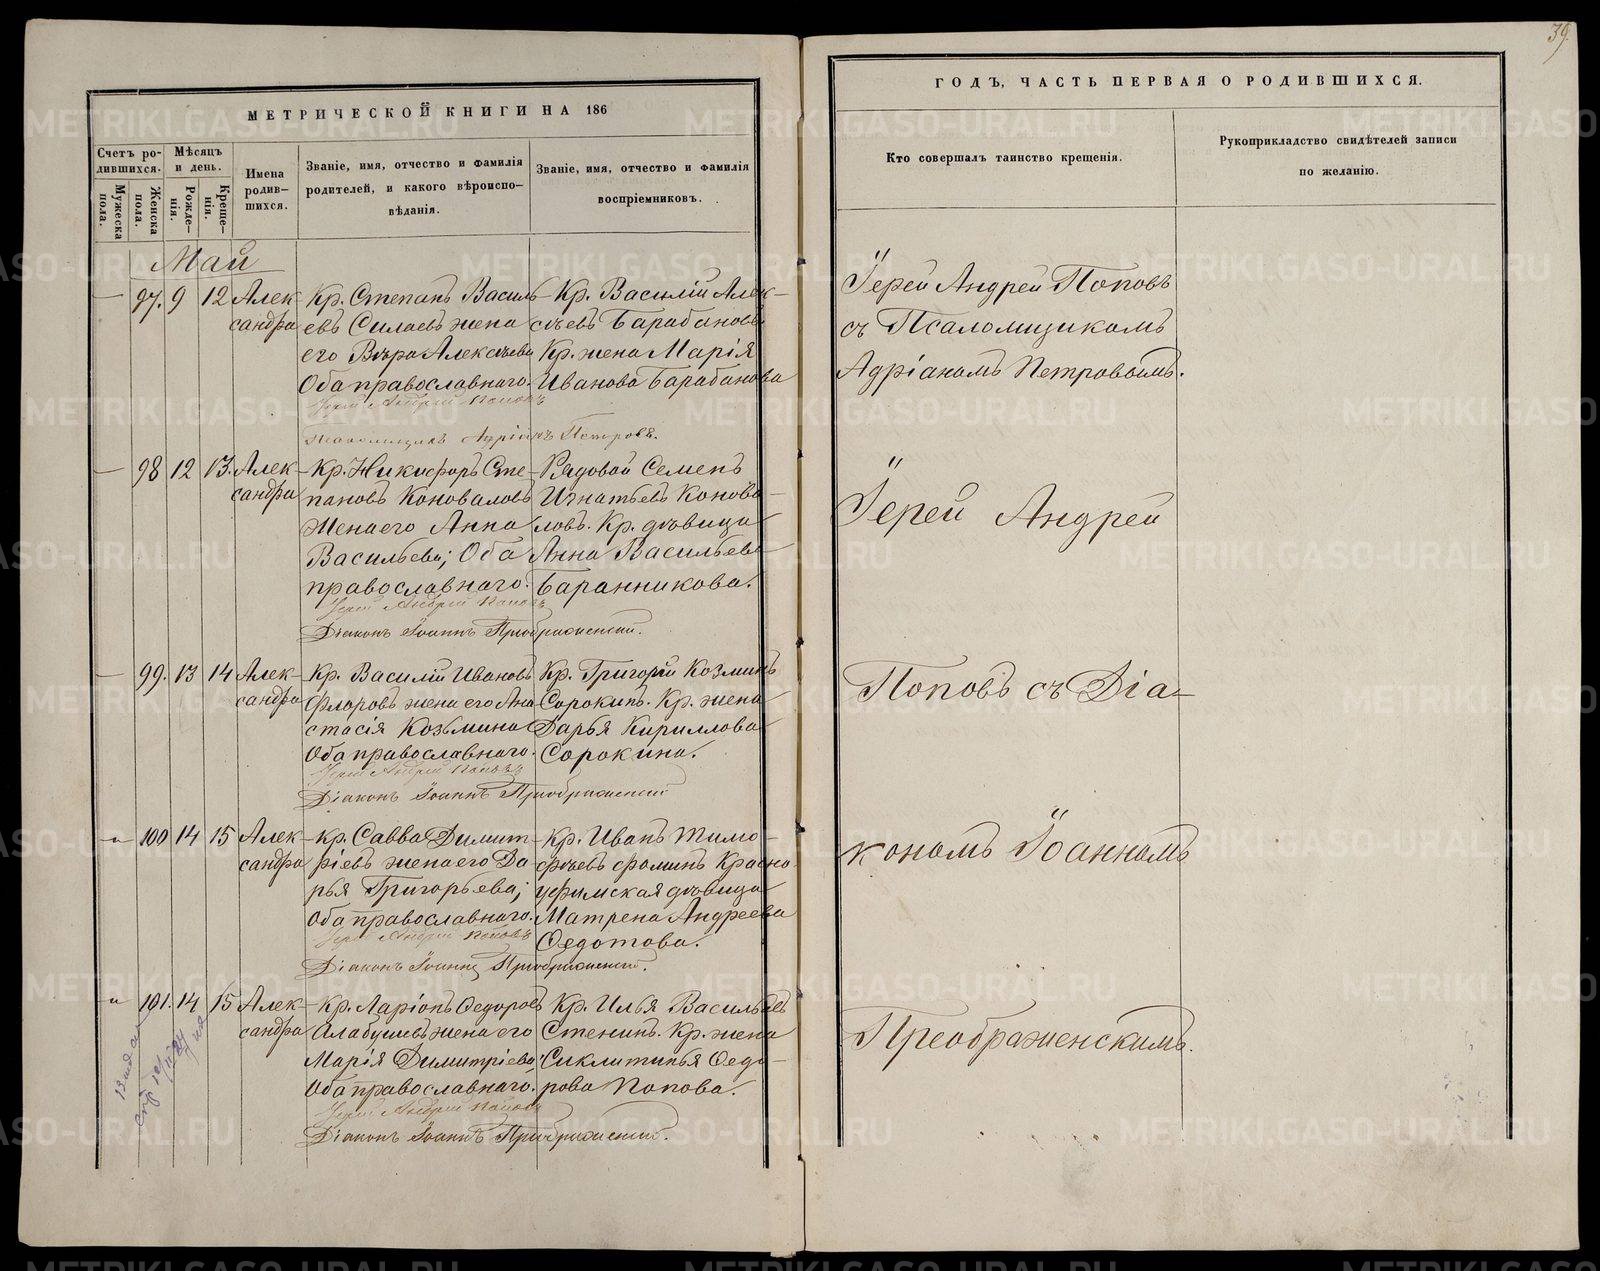 39.
МЕТРИЧЕСКОЙ КНИГИ НА 186
Счетъ ро-
дившихся.
Мужеска
пола.
Женска
пола.
Мѣсяцъ
и день.
Рожде-
нія.
Креще-
нія.
Имена
родив-
шихся.
Званіе, имя, отчество и фамилія
родителей, и какого вѣроиспо-
вѣданія.
Званіе, имя, отчество и фамилія
воспріемниковъ.
Май
97. 9 12 Алек- Кр. Степанъ Василь- Кр. Василій Алек-
сандра евъ Силаевъ жена сѣевъ Барабановъ
его Вѣра Алексѣева Кр. жена Марія
Оба православнаго. Иванова Барабанова
Іерей Андрей Поповъ
Псаломщикъ Адріанъ Петровъ.
98 12 13. Алек- Кр. Никифоръ Сте- Рядовой Семенъ
сандра пановъ Коноваловъ Игнатьевъ Конова-
Жена его Анна ловъ. Кр. дѣвица
Васильева; Оба Анна Васильева
православнаго. Баранникова.
Іерей Андрей Поповъ
Діаконъ Іоаннъ Преображенскій.
99. 13 14 Алек- Кр. Василій Ивановъ Кр. Григорій Козминъ
сандра Флоровъ жена его Ана Сорокинъ. Кр. жена
стасія Козьмина Дарья Кириллова
Оба православнаго. Сорокина.
Іерей Андрей Поповъ
Діаконъ Іоаннъ Преображенскій
100 14 15 Алек- Кр. Савва Димит- Кр. Иванъ Тимо-
сандра ріевъ жена его Да фѣевъ Фоминъ Красно
рья Григорьева; уфимская дѣвица
Оба православнаго. Матрена Андреева
Іерей Андрей Поповъ Ѳедотова.
Діаконъ Іоаннъ Преображенскій.
101. 14 15 Алек- Кр. Ларіонъ Ѳедоровъ Кр. Илья Васильевъ
сандра Алабушевъ жена его Стенинъ. Кр. жена
Марія Димитріева; Сиклитинья Ѳедо-
Оба православнаго. рова Попова.
Іерей Андрей Поповъ
Діаконъ Іоаннъ Преображенскій.
ГОДЪ, ЧАСТЬ ПЕРВАЯ О РОДИВШИХСЯ.
Кто совершалъ таинство крещенія.
Рукоприкладство свидѣтелей записи
по желанію.
Іерей Андрей Поповъ
съ Псаломщикомъ
Адріаномъ Петровымъ.
Іерей Андрей
Поповъ съ Діа-
кономъ Іоанномъ
Преображенскимъ.
METRIKI.GASO-URAL.RU